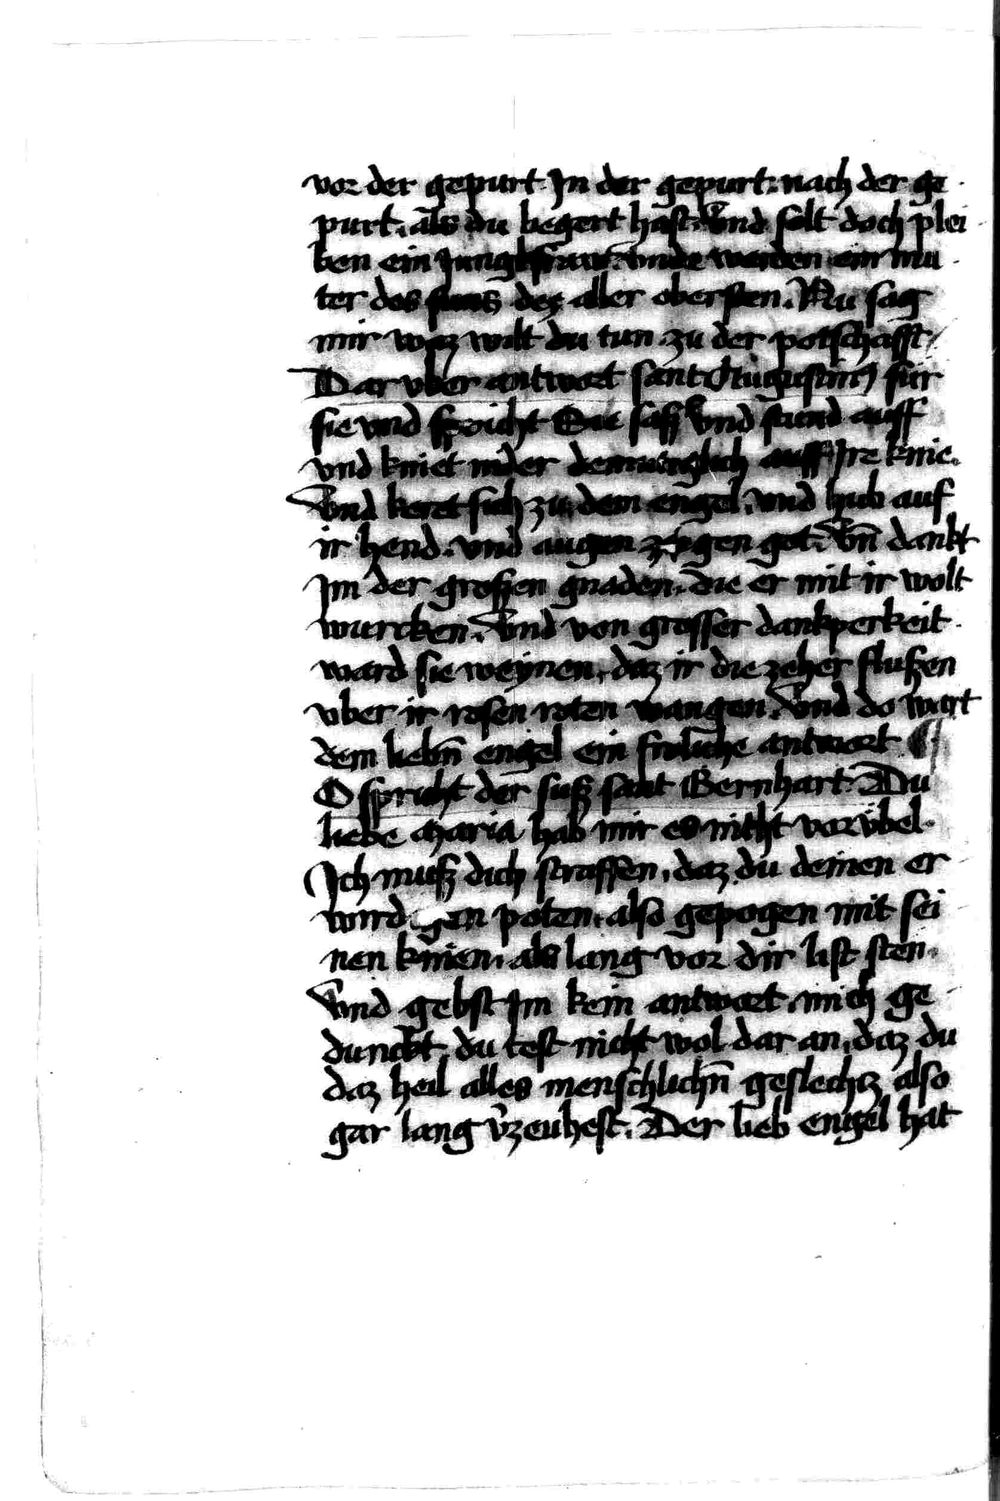 vor der gepurt. In der gepurt. nach der ge
purt. als du begert hast. Vnd solt doch plei
ben ein Jungkfraw. vnde werden ein mu
ter des suns dez aller obersten. Nu sag
mir waz wilt du tun zu der potschafft
Dar vber antwort sant Augustin für
sie vnd spricht Sie saß Vnd stund auff
vnd kniet nider demutiglich auff Ire knie.
Vnd keret sich zu dem engel. vnd hub auf
ir hend. vnd augen gen got. Vn̄ dankt
Im der grossen gnaden. die er mit ir wolt
wurcken. Vnd von grosser dankperkeit
ward sie weynen, daz ir die zeher flußen
vber ir rosen roten wangen. Vnd do wart
dem liebn̄ engel ein froliche antwort
O spricht der suß sant Bernhart. Du
liebe maria hab mir es nicht vor übel.
Ich muß dich straffen, daz du deinen er
wirdigen poten. also gepogen mit sei
nen knien. als lang vor dir list sten.
Vnd gebst Im kein antwort. mich ge
dunckt, du test nicht wol dar an, daz du
daz heil alles menschlichn̄ geslechcz also
gar lang v̄zeuhest. Der lieb engel hat